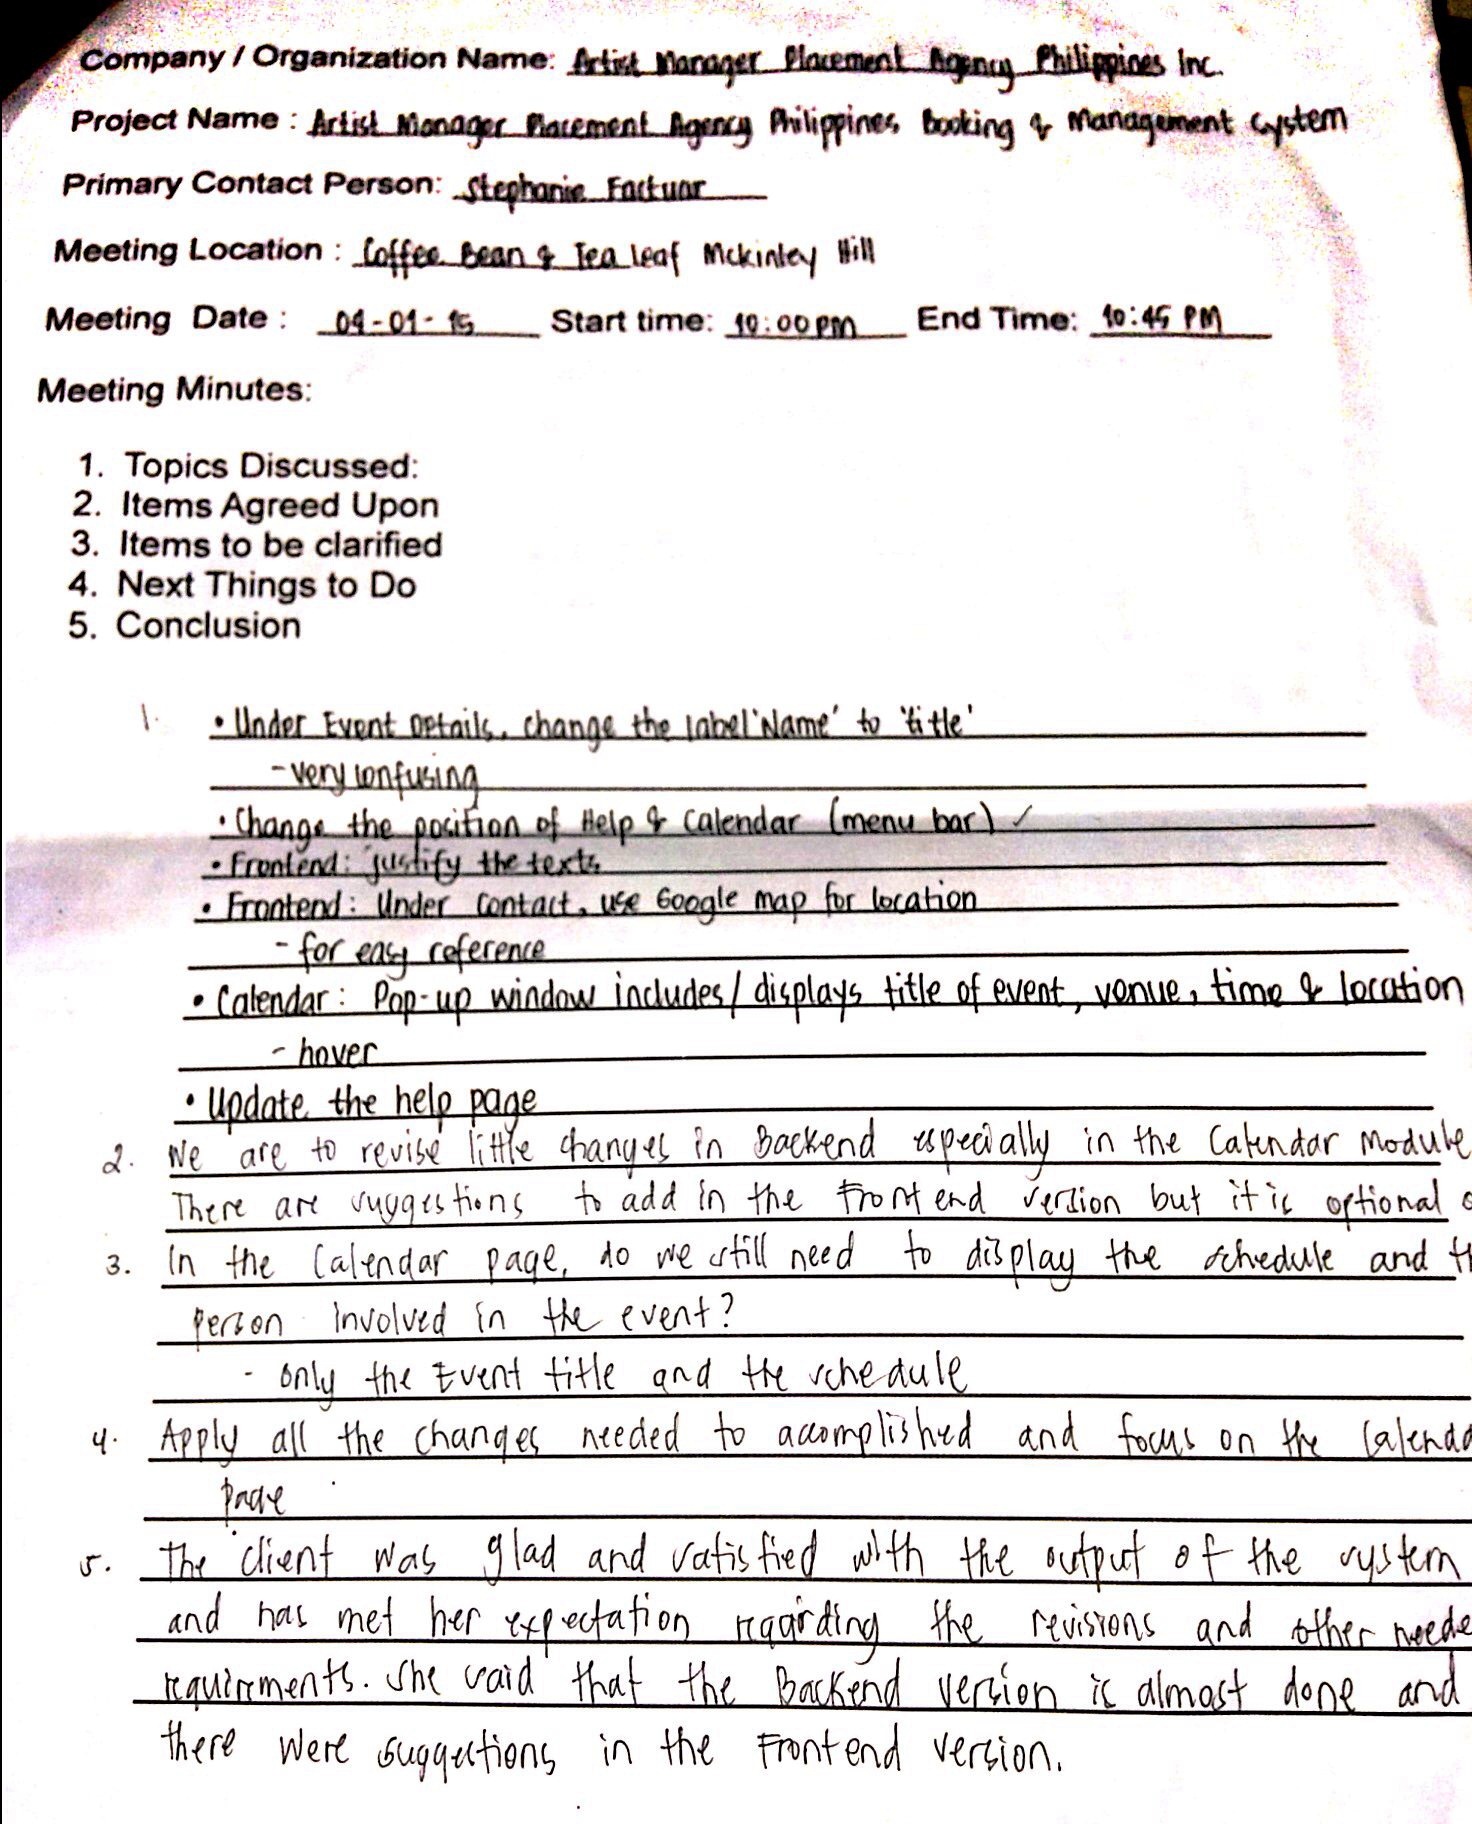 Company / Organization Name: Artist Manager Placement Agency Philippines Inc.
Project Name : Artist Manager Placement Agency Philippines Booking & Management System
Primary Contact Person: Stephanie Factuar
Meeting Location : Coffee Bean & Tea Leaf Mckinley Hill
Meeting Date : 04-01-15 Start time: 10:00 pm End Time: 10:45 PM
Meeting Minutes:
1. Topics Discussed:
2. Items Agreed Upon
3. Items to be clarified
4. Next Things to Do
5. Conclusion
1. • Under Event Details, change the label 'Name' to 'title'
- very confusing
• Change the position of Help & Calendar (menu bar) ✓
• Frontend: justify the texts
• Frontend: Under Contact, use Google map for location
- for easy reference
• Calendar: Pop-up window includes/ displays title of event, venue, time & location
- hover
• Update the help page
2. We are to revise little changes in Backend especially in the Calendar Module
There are suggestions to add in the Frontend version but it is optional
3. In the Calendar page, do we still need to display the schedule and
person involved in the event?
- only the Event title and the schedule
4. Apply all the changes needed to accomplished and focus on the Calenda
page
5. The client was glad and satisfied with the output of the system
and has met her expectation regarding the revisions and other neede
requirements. She said that the Backend version is almost done and
there were suggestions in the Frontend version.